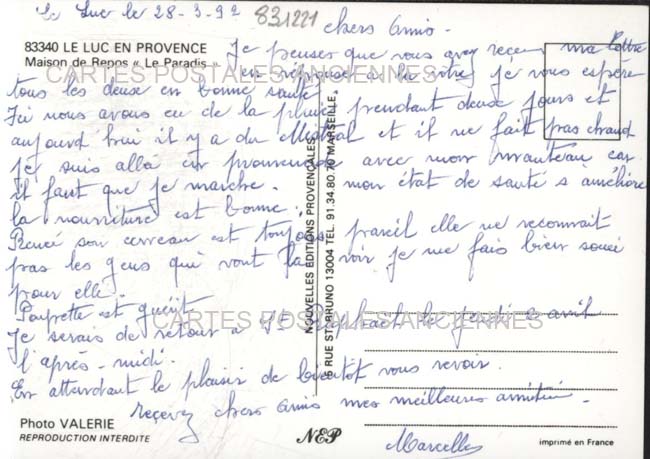 Le Luc le 28-3-92
831221
83340 LE LUC EN PROVENCE
Maison de Repos « Le Paradis »
chers Amis -
Je penser que vous avez reçue ma lettre
en réponse a la votre, je vous espère
tous les deux en bonne santé
Ici nous avons eu de la pluie prendant deux jours et
aujourd hui il y a du Mistral et il ne fait pas chaud
je suis allé en promenade avec mon manteau car
il faut que je marche. mon état de santé s améliore
la nourriture est bonne.
René son cerveau est toujours pareil elle ne reconnait
pas les gens qui vont la voir je me fais bien souci
pour elle.
est guérit
Je serais de retour a le jeudi 2 avril
l'après-midi.
En attendant le plaisir de bientôt vous revoir.
recevez chers Amis mes meilleures amitiés.
Marcelle
CARTES POSTALES ANCIENNES
CARTES POSTALES ANCIENNES
NOUVELLES ÉDITIONS PROVENÇALES
5 RUE ST-BRUNO 13004 TEL. 91.34.80.70 MARSEILLE
Photo VALERIE
REPRODUCTION INTERDITE
NEP
imprimé en France